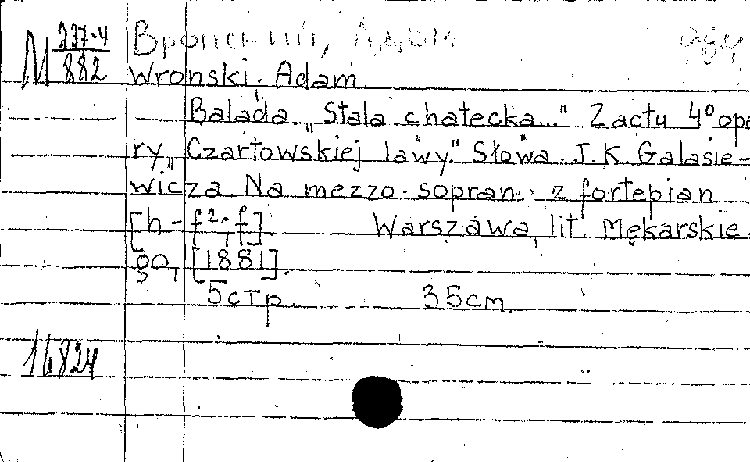 M 337-4/882
Wronski. Adam
Balada „Stala chatecka..." Z actu 4º ope
ry „Czartowskiej lawy." Słowa J. K. Galasie-
wicza Na mezzo-sopran z fortepian
[h-f²-f] Warszawa, lit. Mękarskie-
go, [1881].
5 стр. 35 cm
16824